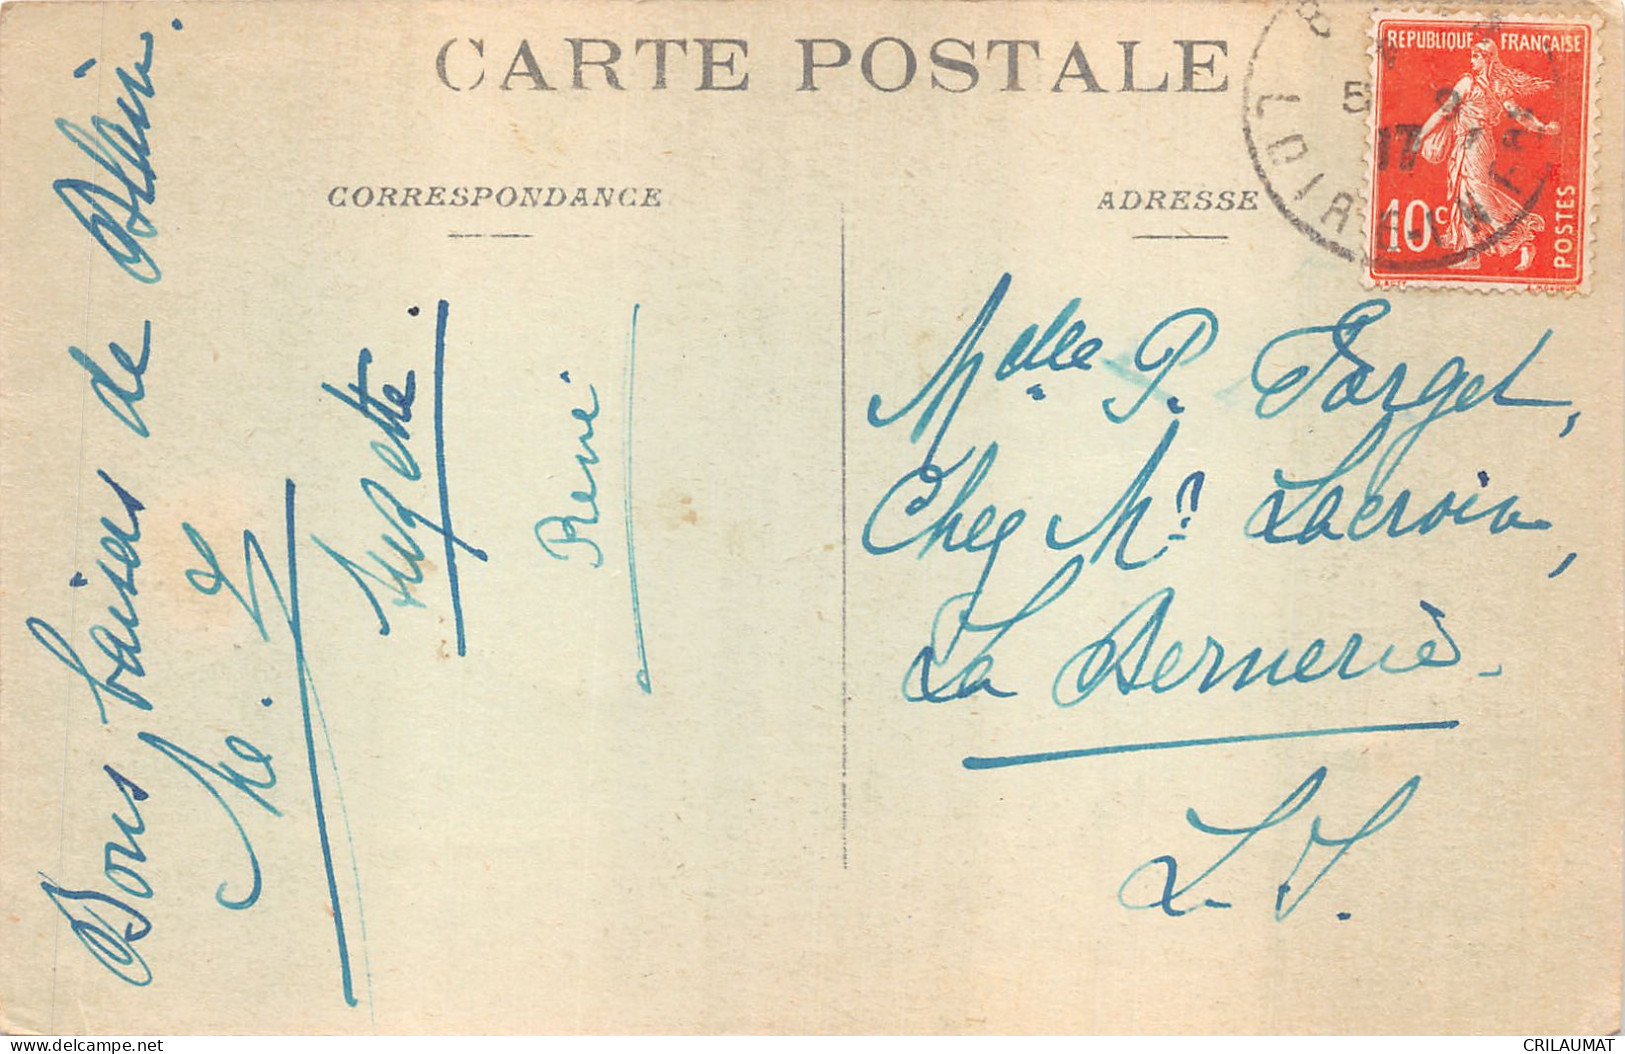 CARTE POSTALE
CORRESPONDANCE
ADRESSE
REPUBLIQUE FRANÇAISE
10c
POSTES
LOIRE-INF
5
17
Bons baisers de Blain.
Suzette.
René
Mdelle P. Forget,
Chez Mr Lacroix,
La Bernerie.
L. I.
delcampe.net
CRILAUMAT